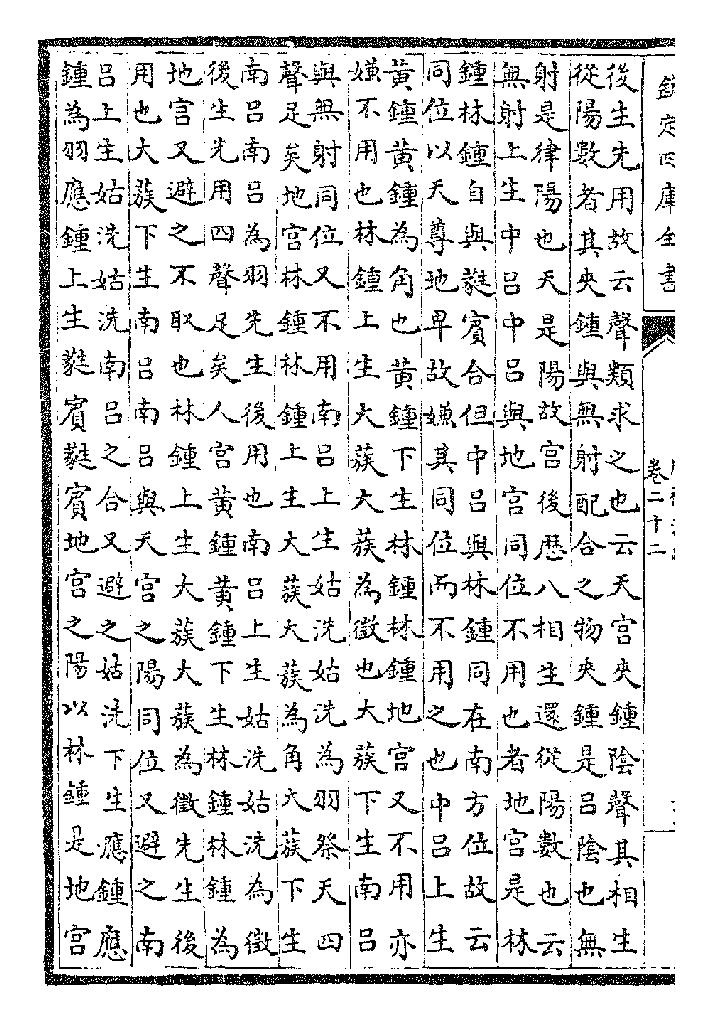 欽定四庫全書
卷二十二
後生先用故云聲類求之也云天宮夾鍾陰聲其相生
從陽數者其夾鍾與無射配合之物夾鍾是呂陰也無
射是律陽也天是陽故宮後厯八相生還從陽數也云
無射上生中呂中呂與地宮同位不用也者地宮是林
鍾林鍾自與蕤賓合但中呂與林鍾同在南方位故云
同位以天尊地卑故嫌其同位而不用之也中呂上生
黃鍾黃鍾為角也黃鍾下生林鍾林鍾地宮又不用亦
嫌不用也林鍾上生大蔟大蔟為徵也大蔟下生南呂
與無射同位又不用南呂上生姑洗姑洗為羽祭天四
聲足矣地宮林鍾林鍾上生大蔟大蔟為角大蔟下生
南呂南呂為羽先生後用也南呂上生姑洗姑洗為徵
後生先用四聲足矣人宮黃鍾黃鍾下生林鍾林鍾為
地宮又避之不取也林鍾上生大蔟大蔟為徵先生後
用也大蔟下生南呂南呂與天宮之陽同位又避之南
呂上生姑洗姑洗南呂之合又避之姑洗下生應鍾應
鍾為羽應鍾上生蕤賓蕤賓地宮之陽以林鍾是地宮